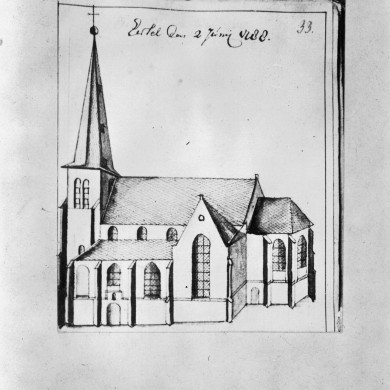 Eersel Den 2 Junij 1788. 33.